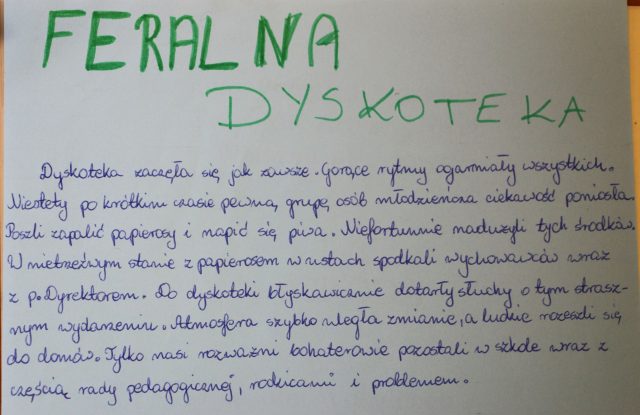 FERALNA
DYSKOTEKA
Dyskoteka zaczęła się jak zawsze. Gorące rytmy ogarniały wszystkich.
Niestety po krótkim czasie pewną grupę osób młodzieńcza ciekawość poniosła.
Poszli zapalić papierosy i napić się piwa. Niefortunnie nadużyli tych środków.
W nietrzeźwym stanie z papierosem w ustach spotkali wychowawców wraz
z p. Dyrektorem. Do dyskoteki błyskawicznie dotarły słuchy o tym strasz-
nym wydarzeniu. Atmosfera szybko uległa zmianie, a ludzie rozeszli się
do domów. Tylko nasi rozważni bohaterowie pozostali w szkole wraz z
częścią rady pedagogicznej, rodzicami i problemem.